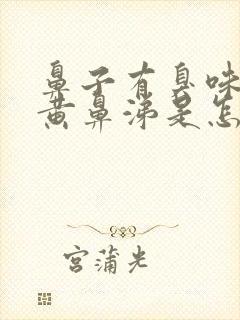 鼻子有臭味
黄鼻涕是怎
宫蒲光